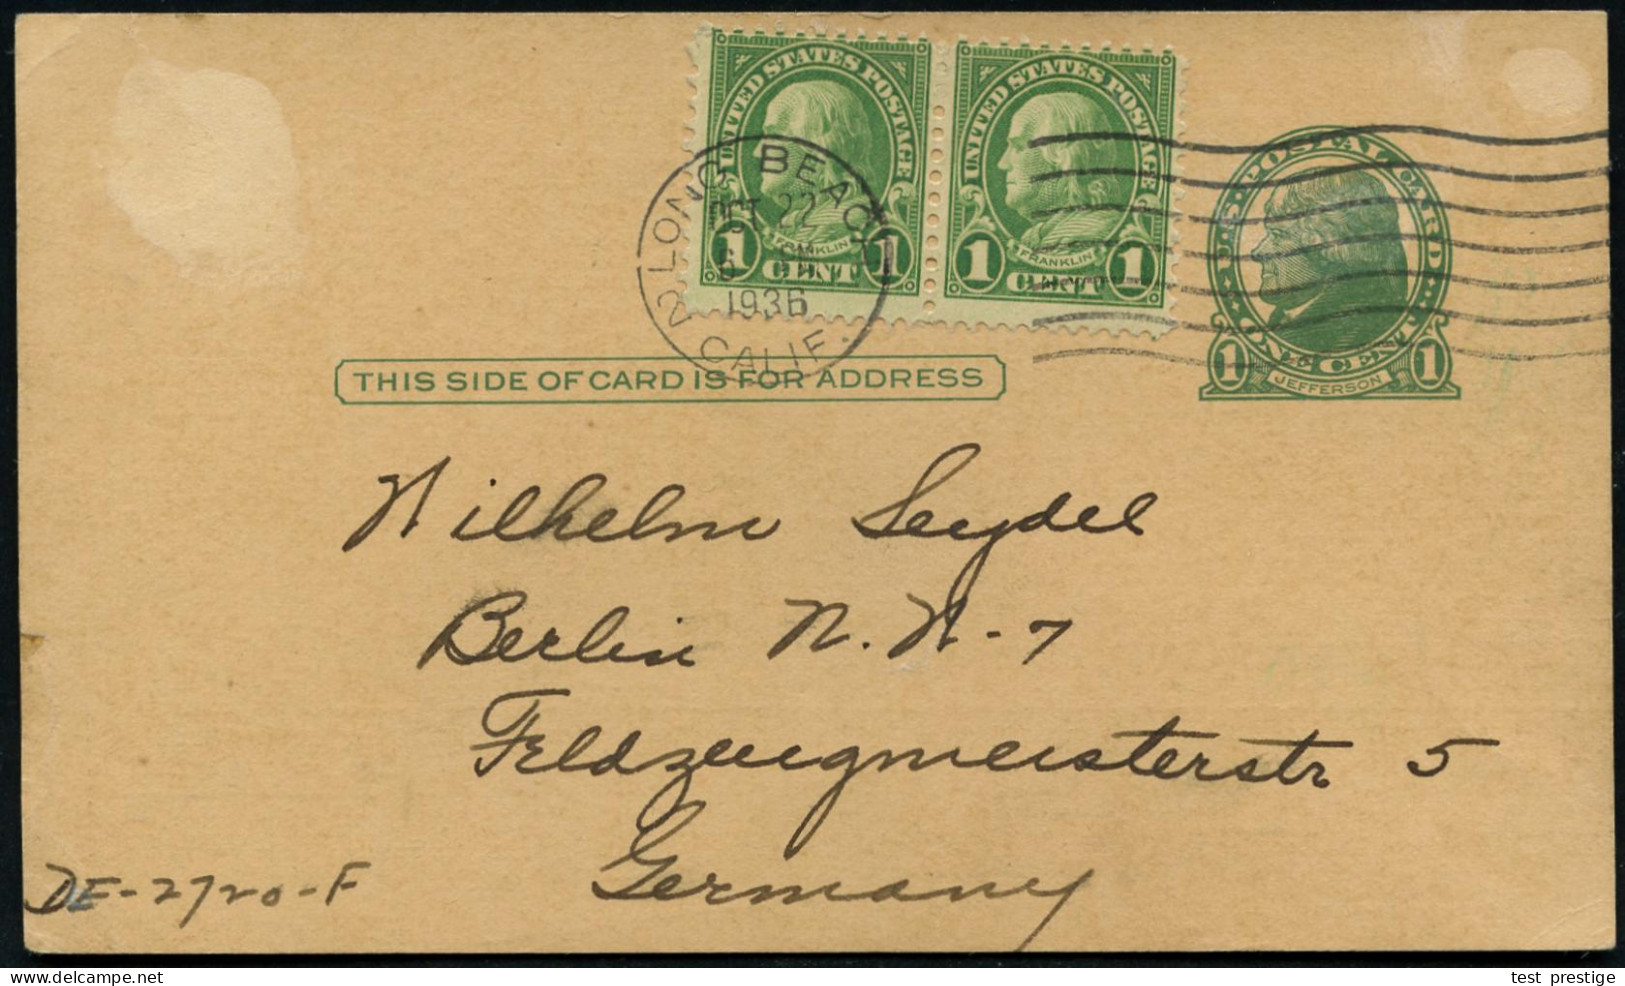 UNITED STATES POSTAGE
FRANKLIN
1 CENT 1
UNITED STATES POSTAGE
FRANKLIN
1 CENT 1
LONG BEACH
OCT 22
1936
2 CALIF.
U.S. POSTAL CARD
ONE CENT
1 JEFFERSON 1
THIS SIDE OF CARD IS FOR ADDRESS
Wilhelm Seydel
Berlin N.W-7
Feldzeugmeisterstr 5
Germany
DE-2720-F
www.delcampe.net
test_prestige